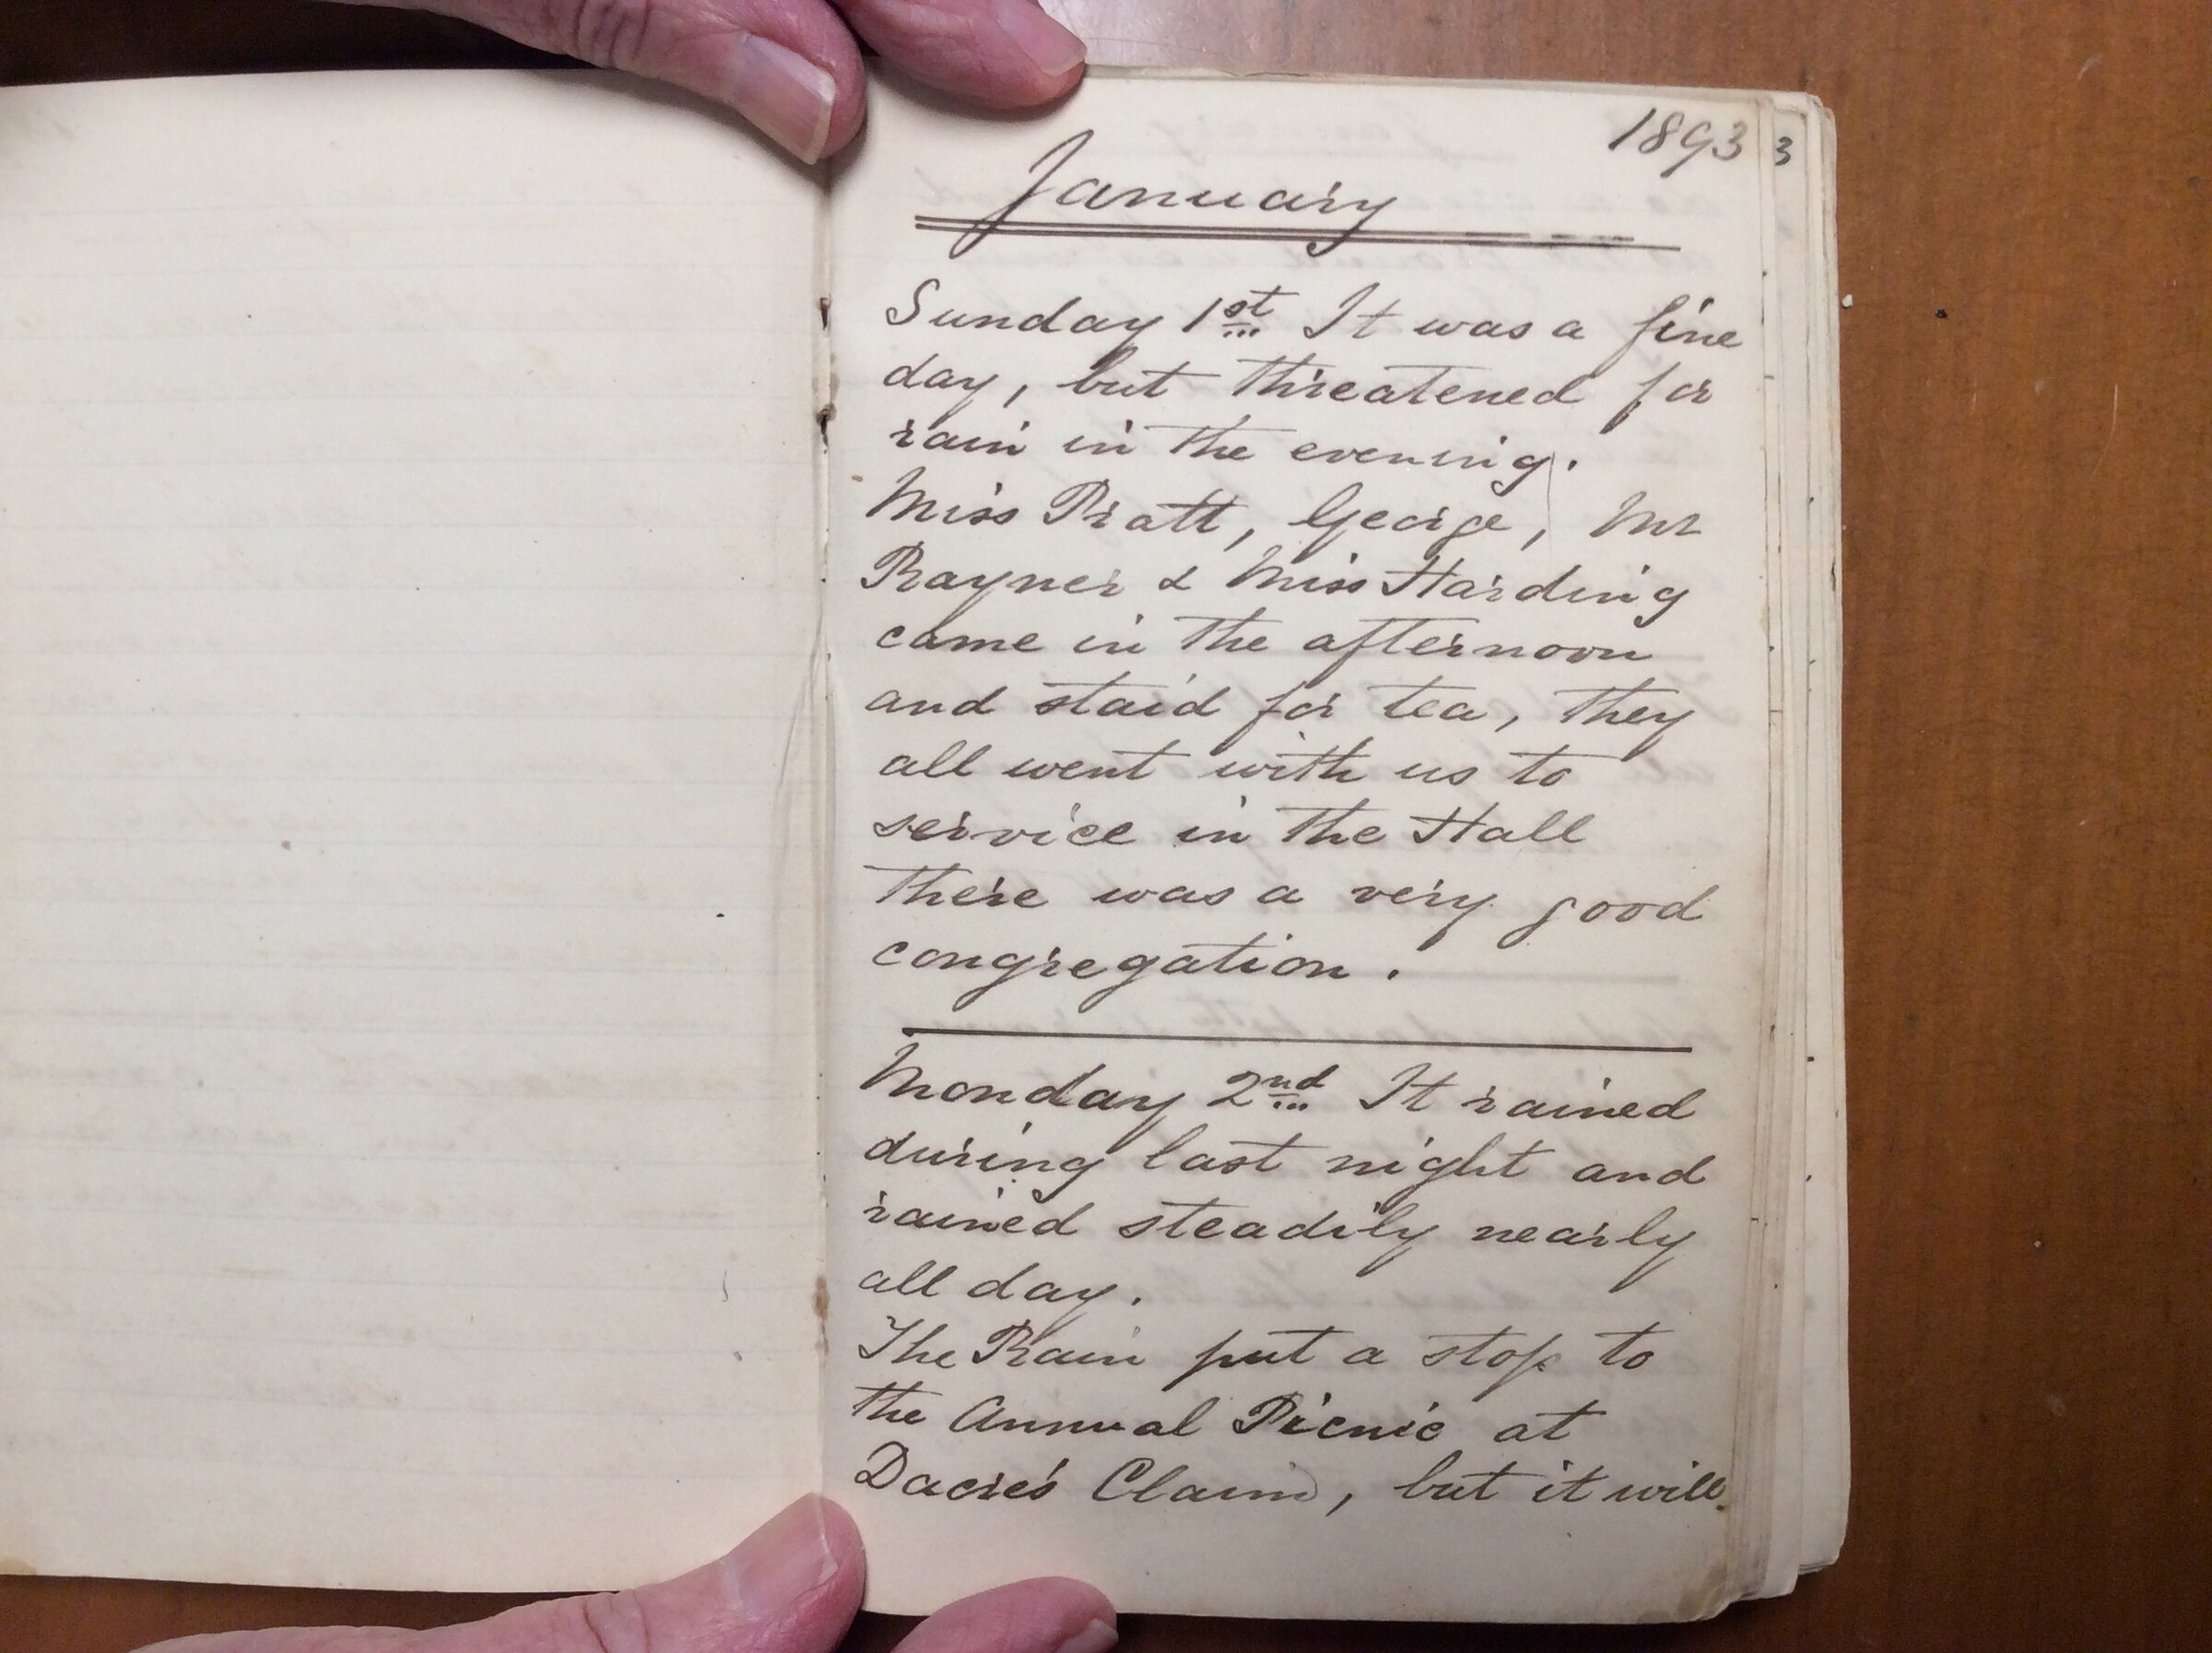 1893
3
January
Sunday 1st It was a fine
day, but threatened for
rain in the evening.
Miss Pratt, George, Mr
Rayner & Miss Harding
came in the afternoon
and staid for tea, they
all went with us to
service in the Hall
there was a very good
congregation.
Monday 2nd It rained
during last night and
rained steadily nearly
all day.
The Rain put a stop to
the Annual Picnic at
Dacre's Claim, but it will